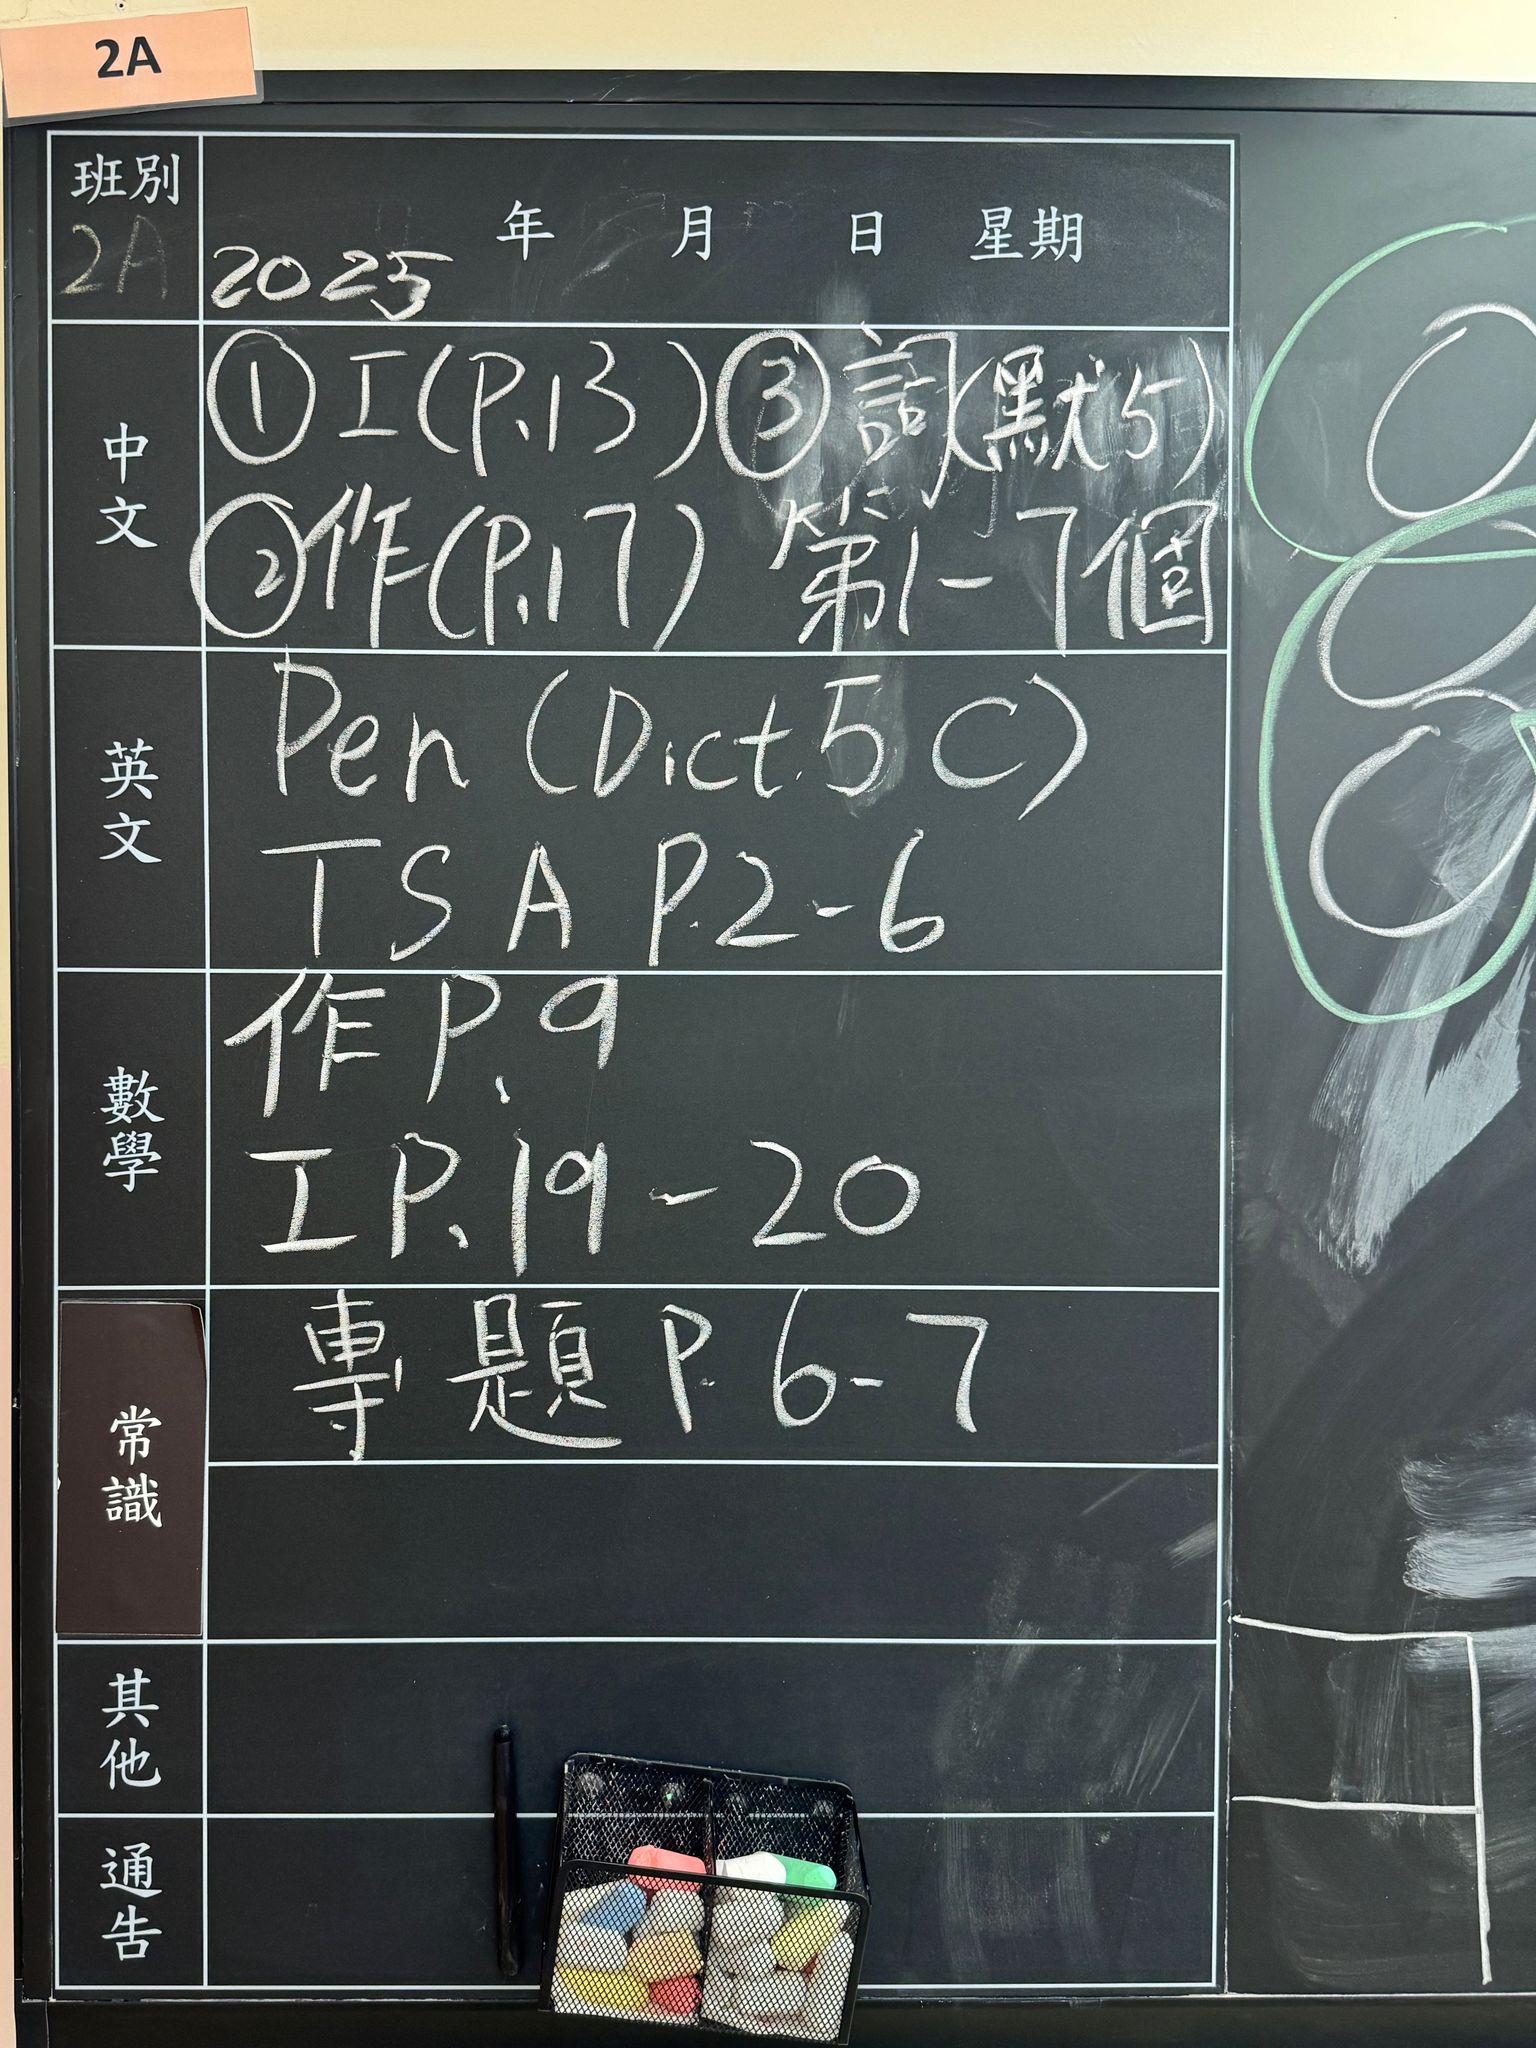 2A
班別
2A
年 月 日 星期
2025
中文
① 工(P.13) ③ 詞(默5)
② 作(P.17) 第1-7個
英文
Pen (Dict.5C)
TSA P.2-6
數學
作 P.9
工 P.19-20
常識
專題 P.6-7
其他
通告